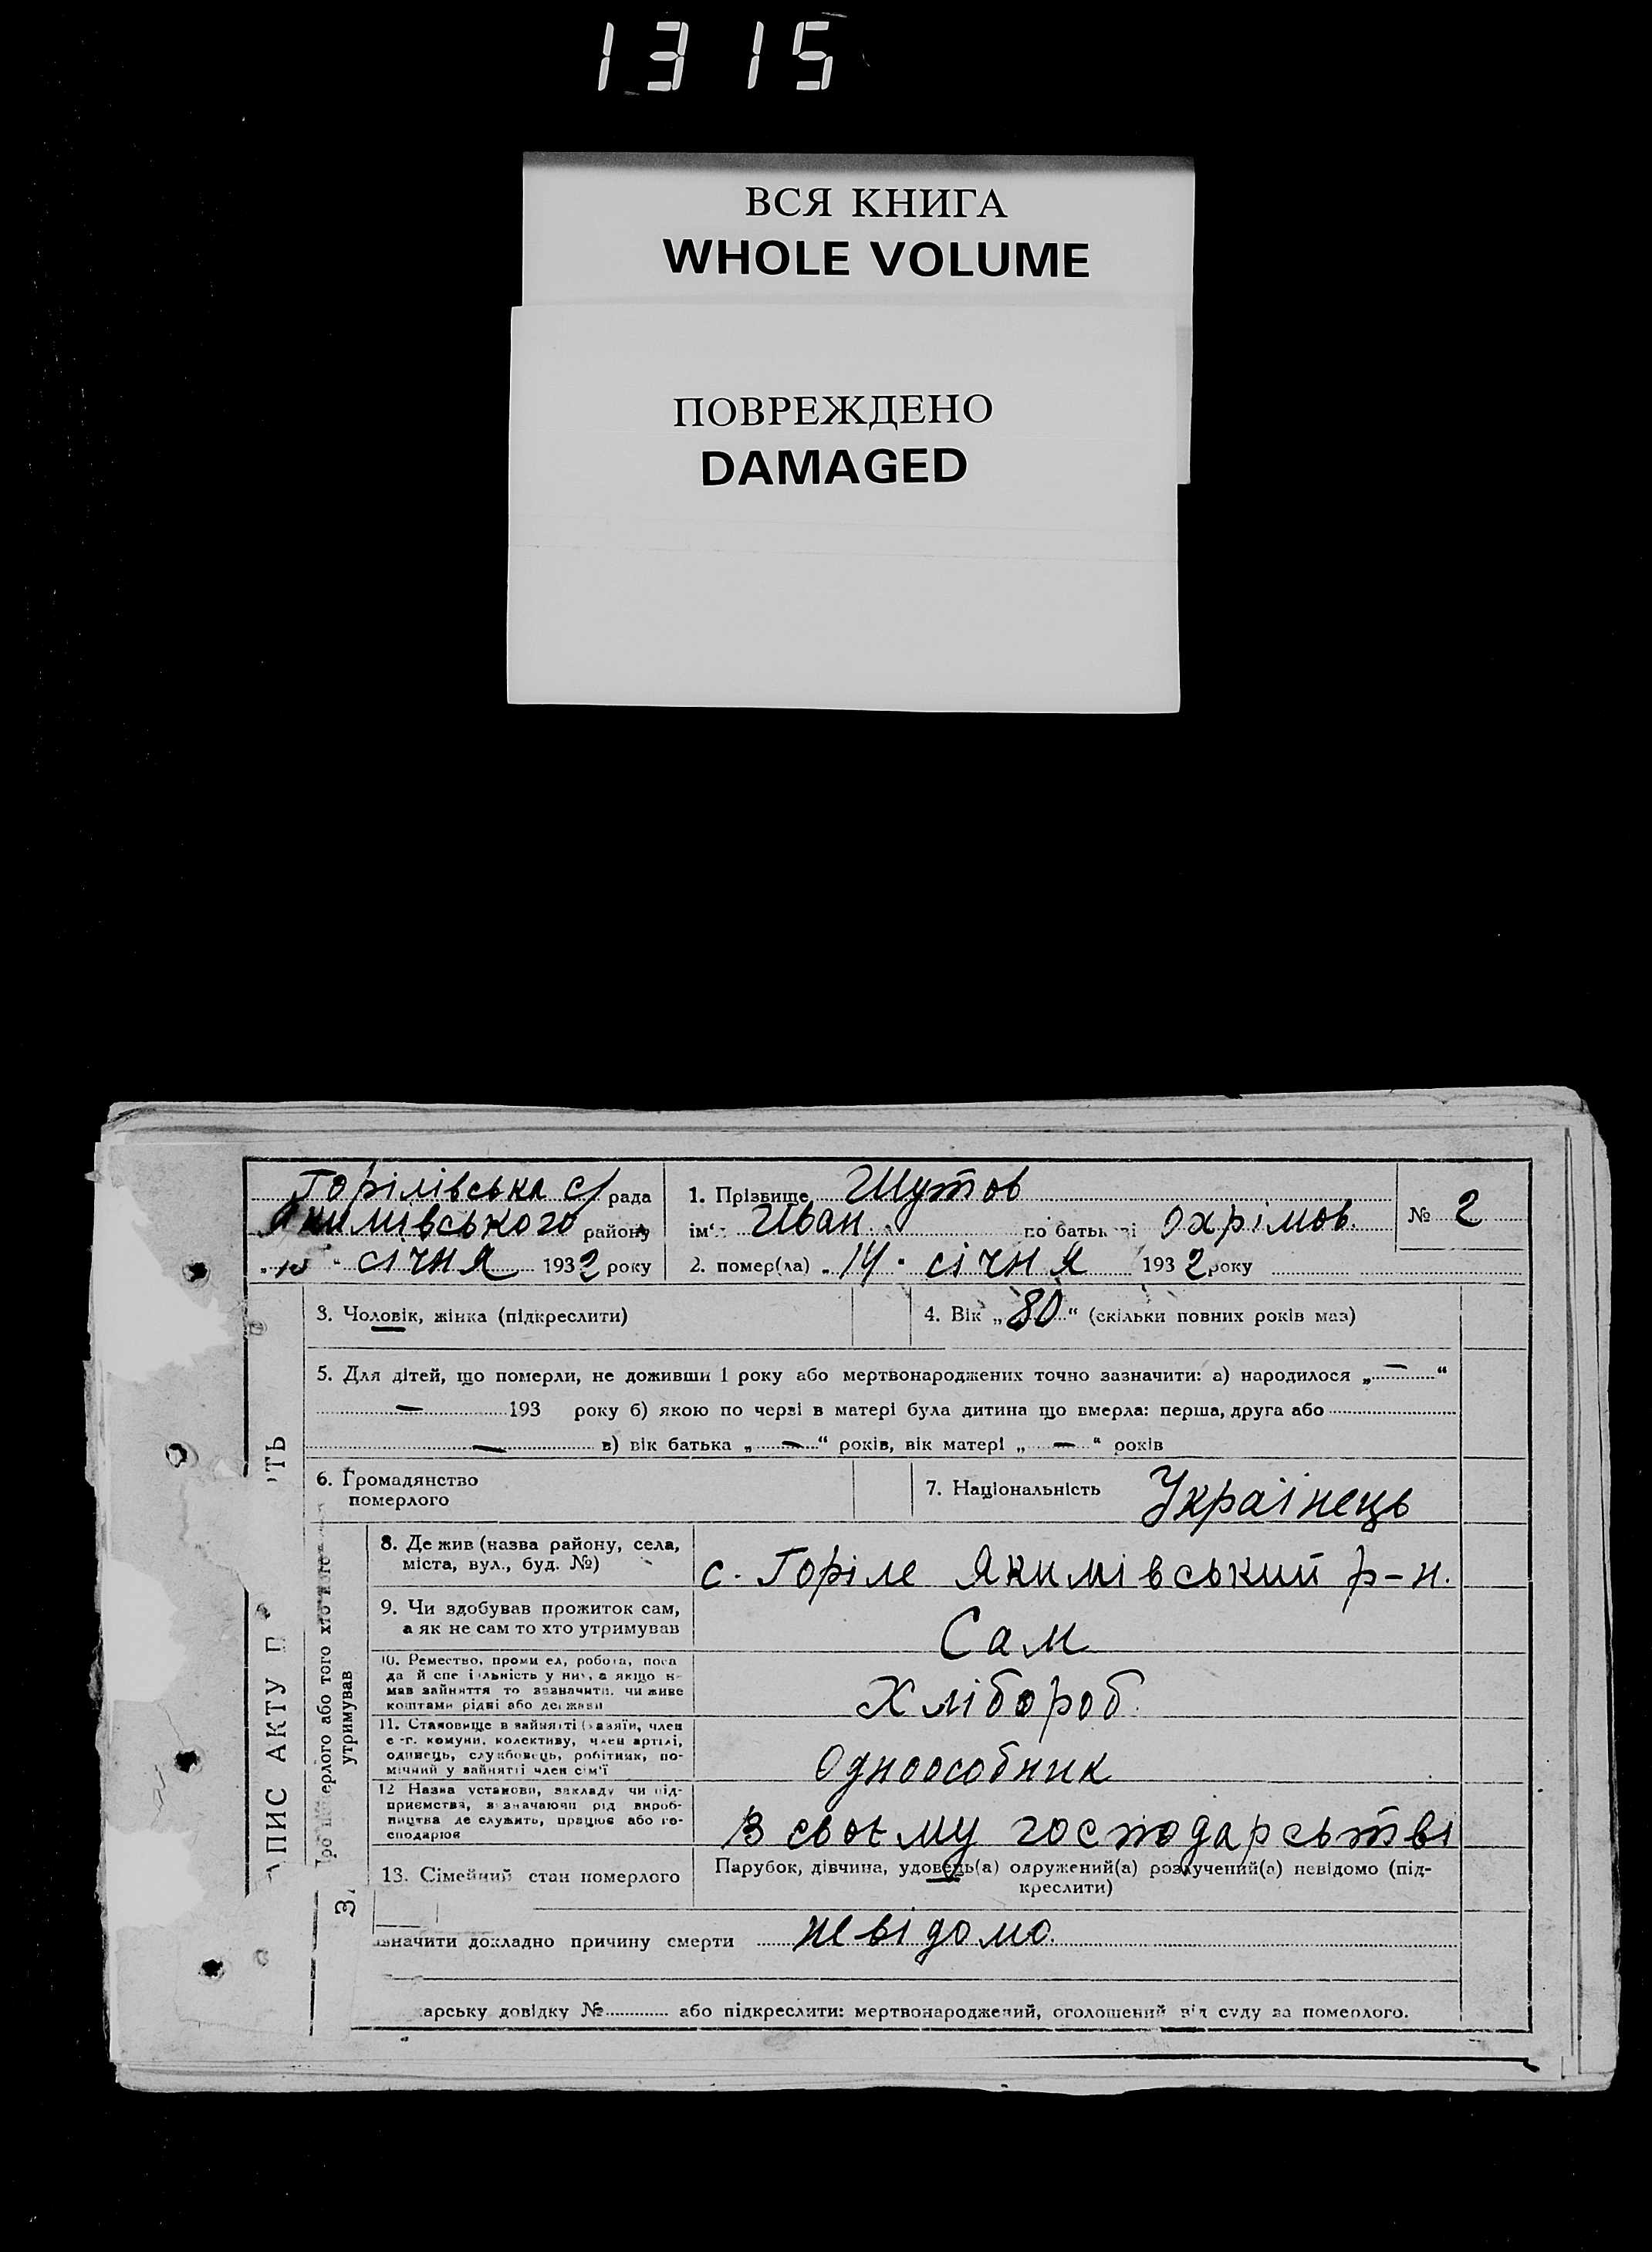 1315
ВСЯ КНИГА
WHOLE VOLUME
ПОВРЕЖДЕНО
DAMAGED
Горілівська с/рада
Якимівського району
"15" січня 1932 року
1. Прізвище Шутов
ім'я Иван по батькові Охрімов.
№ 2
2. помер(ла) "14" січня 1932 року
3. Чоловік, жінка (підкреслити)
4. Вік „80“ (скільки повних років мав)
5. Для дітей, що померли, не доживши 1 року або мертвонароджених точно зазначити: а) народилося „—“
— 193 року б) якою по черзі в матері була дитина що вмерла: перша, друга або
— в) вік батька „—“ років, вік матері „—“ років
6. Громадянство
померлого
7. Національність Украінець
8. Де жив (назва району, села,
міста, вул., буд. №)
с. Горіле Якимівський р-н.
9. Чи здобував прожиток сам,
а як не сам то хто утримував
Сам
10. Ремество, промисел, робота, поса
да й спеціяльність у них, а якщо не
мав зайняття то зазначити, чи живе
коштами рідні або держави
Хлібороб.
11. Становище в зайнятті (хазяїн, член
с.-г. комуни, колективу, член артілі,
одинець, службовець, робітник, по-
мічний у зайнятті член сім'ї
Одноособник
12 Назва установи, закладу чи під-
приємства, зазначаючи рід вироб-
ництва де служить, працює або го-
сподарює
В своєму господарсьтві
13. Сімейний стан померлого
Парубок, дівчина, удовець(а) одружений(а) розлучений(а) невідомо (під-
креслити)
значити докладно причину смерти невідомо.
арську довідку № або підкреслити: мертвонароджений, оголошений від суду за померлого.
ПИС АКТУ П
ТЬ
ерлого або того хто його
утримував